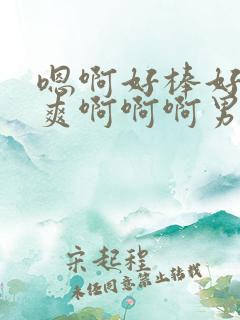 嗯啊好棒好
爽啊啊啊男
宋起程
未经同意禁止转载